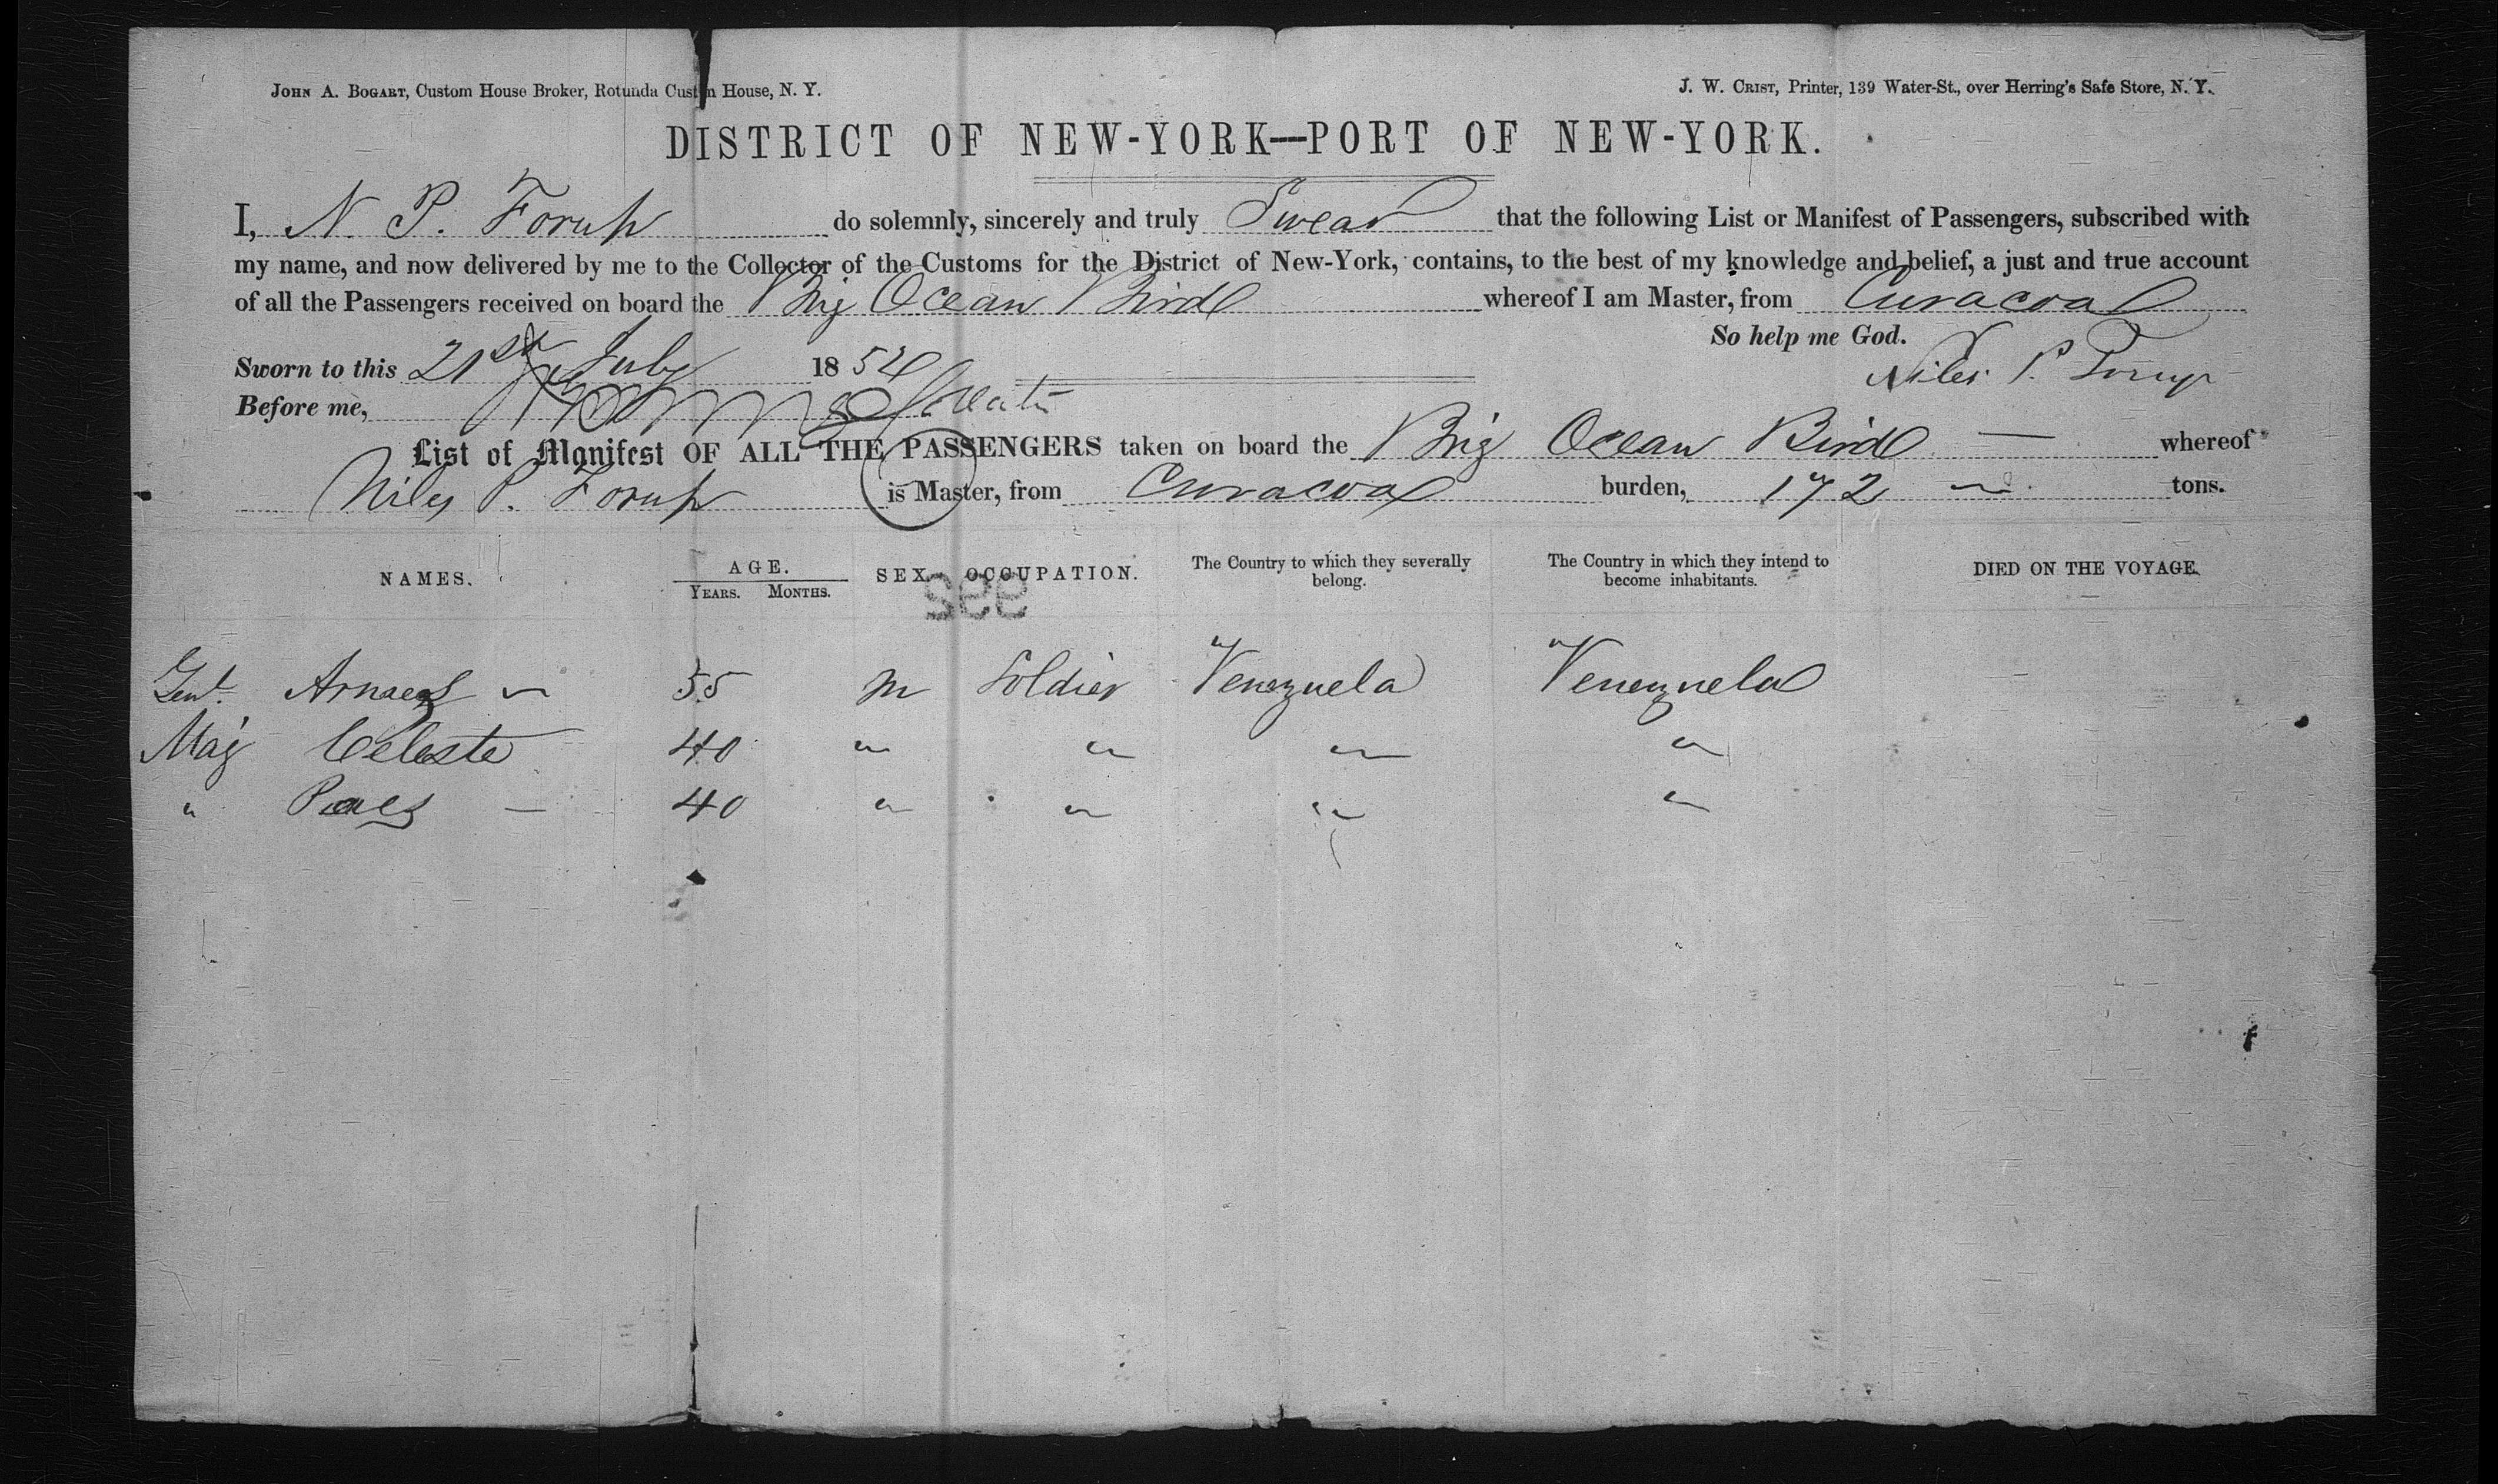 JOHN A. BOGART, Custom House Broker, Rotunda Custom House, N. Y.
J. W. CRIST, Printer, 139 Water-St., over Herring's Safe Store, N. Y.
DISTRICT OF NEW-YORK—PORT OF NEW-YORK.
I, N. P. Forup do solemnly, sincerely and truly Swear that the following List or Manifest of Passengers, subscribed with
my name, and now delivered by me to the Collector of the Customs for the District of New-York, contains, to the best of my knowledge and belief, a just and true account
of all the Passengers received on board the Brig Ocean Bird whereof I am Master, from Curacoa
So help me God.
Sworn to this 21st July 1854 Niles P. Forup
Before me,
List of Manifest OF ALL THE PASSENGERS taken on board the Brig Ocean Bird — whereof
Niles P. Forup is Master, from Curacoa burden, 172 tons.
NAMES. AGE. YEARS. MONTHS. SEX. OCCUPATION. The Country to which they severally belong. The Country in which they intend to become inhabitants. DIED ON THE VOYAGE.
992
Genl. 55 m Soldier Venezuela Venezuela
Maj Celeste 40 " " " "
" Paes — 40 " " " "